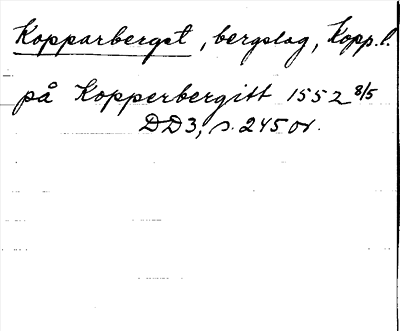 Kopparberget, bergslag, Kopp.l.
på Kopperbergitt 1552 8/5
DD3, s. 245 or.